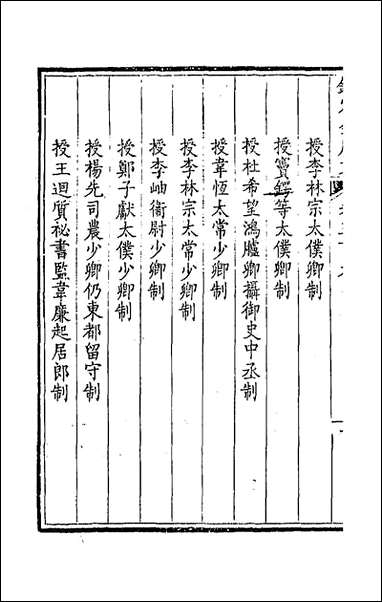 授李林宗太僕卿制
授竇鍔等太僕卿制
授杜希望鴻臚卿攝御史中丞制
授韋恆太常少卿制
授李林宗太常少卿制
授李岫衞尉少卿制
授鄭子獻太僕少卿制
授楊先司農少卿仍東都留守制
授王迴質祕書監韋廉起居郎制